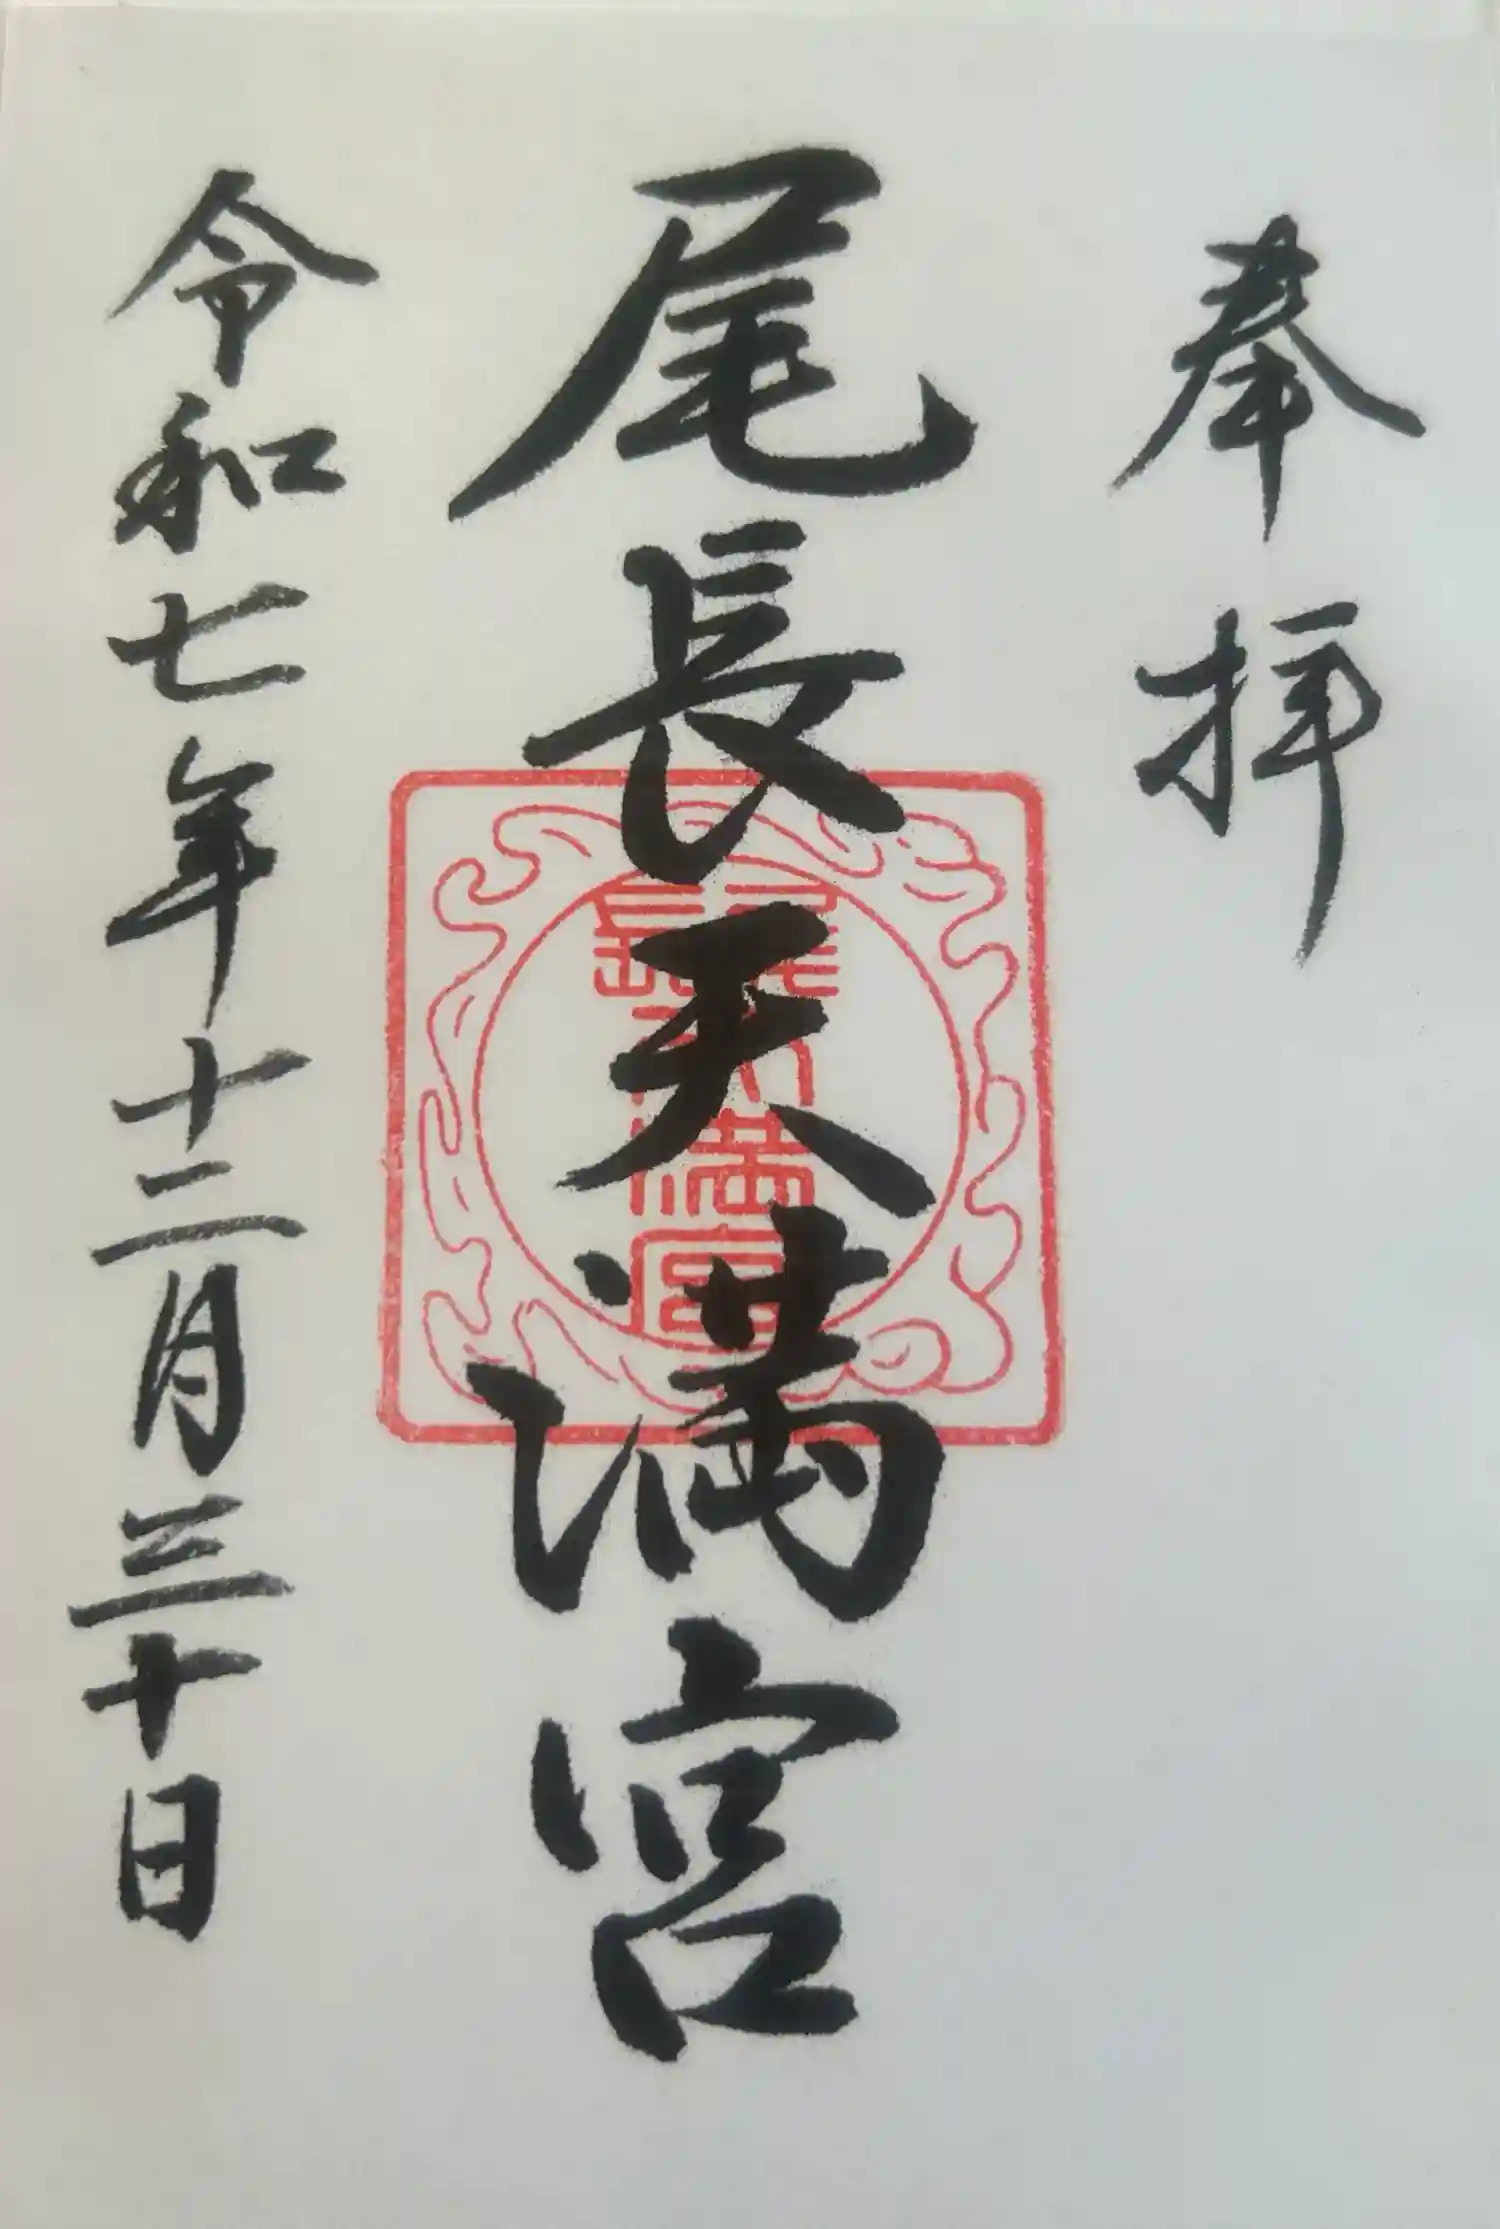 奉拝
尾長天満宮
尾長
天満宮
令和七年十二月三十日